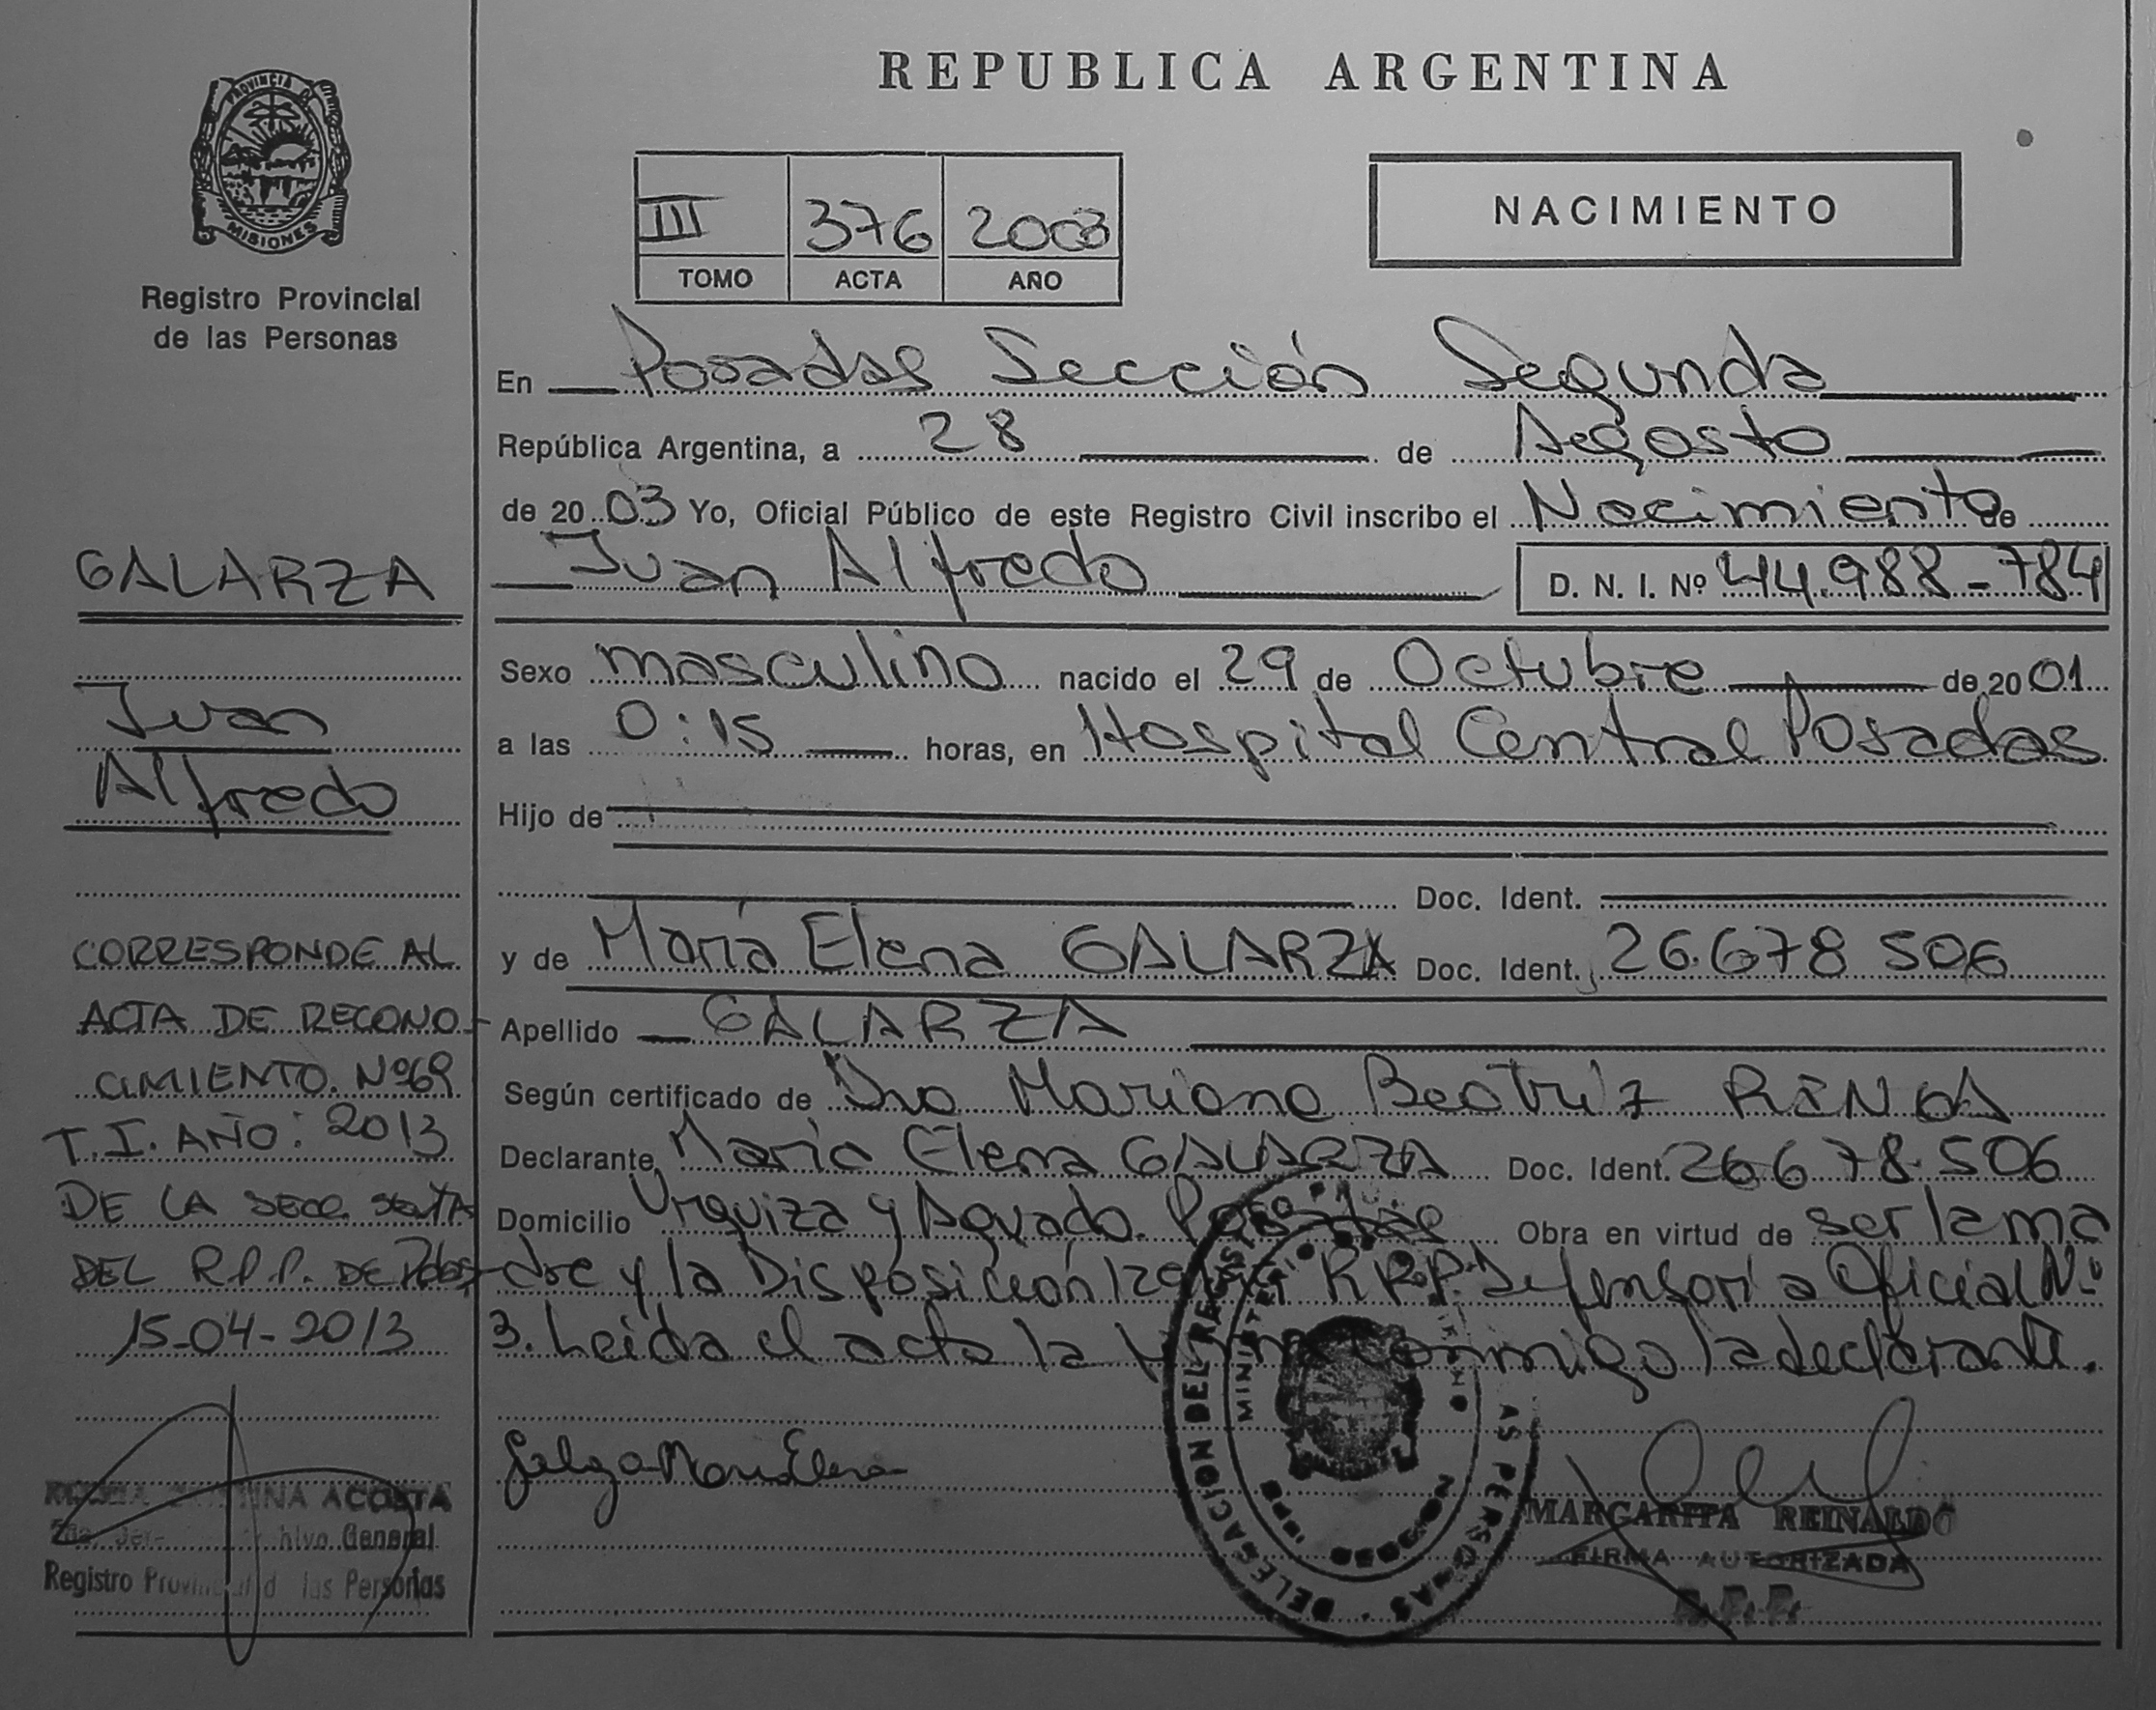 REPUBLICA ARGENTINA
PROVINCIA DE
MISIONES
Registro Provincial
de las Personas
III 376 2003
TOMO ACTA AÑO
NACIMIENTO
En Posadas Sección Segunda
República Argentina, a 28 de Agosto
de 2003 Yo, Oficial Público de este Registro Civil inscribo el Nacimiento de
Juan Alfredo D. N. I. Nº 44.988-784
Sexo masculino nacido el 29 de Octubre de 2001
a las 0:15 horas, en Hospital Central Posadas
Hijo de
Doc. Ident.
y de María Elena GALARZA Doc. Ident. 26.678 506
Apellido GALARZA
Según certificado de Dra Mariana Beatriz
Declarante María Elena GALARZA Doc. Ident. 26678.506
Domicilio Urquiza y Aguado. Posadas Obra en virtud de ser la ma
dre y la Disposición R.P.P. Defensoría Oficial Nº
3. Leída el acta la conmigo la declarante.
GALARZA
Juan
Alfredo
CORRESPONDE AL
ACTA DE RECONO-
CIMIENTO. Nº69
T.I. AÑO: 2013
DE LA SECC. SEXTA
DEL R.P.P. DE Pdas
15-04-2013
ACOSTA
General
Registro las Personas
Maria Elena
DELEGACION DEL
AS PERSONAS
MARGARITA REINALDO
FIRMA AUTORIZADA
R.P.P.